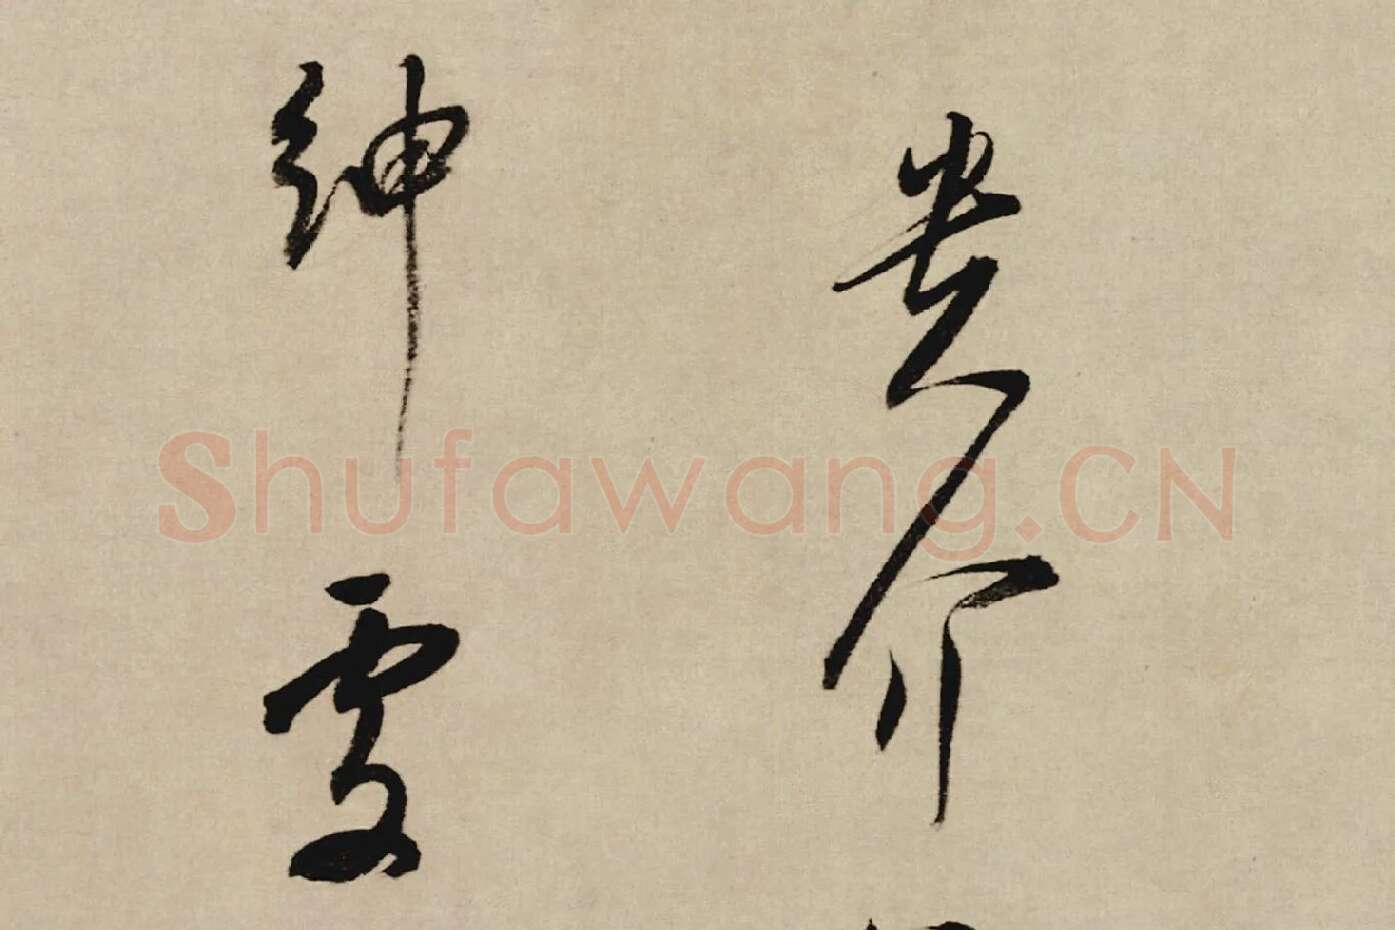 貴介
紳處
Shufawang.CN